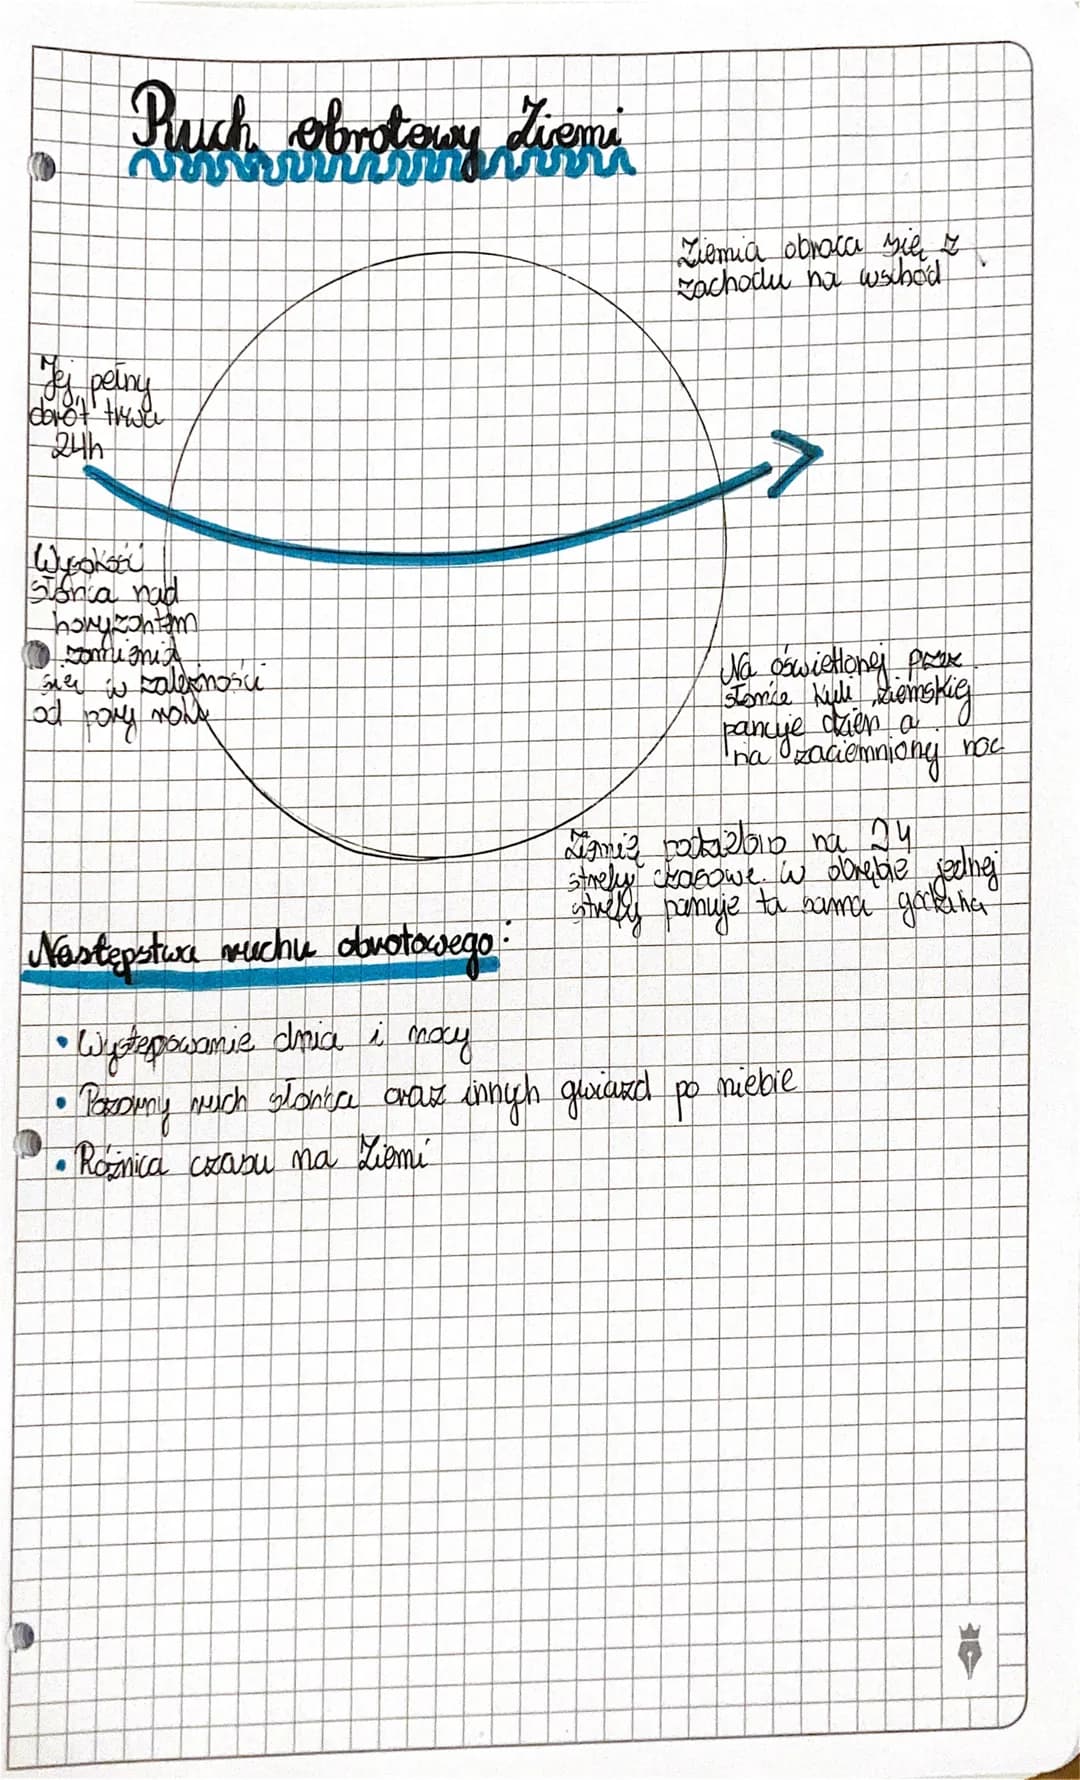 Ruch obrotowy Ziemi
Ziemia obraca się z
zachodu na wschód
Jej pełny
obrót trwa
24h
Wysokość
słońca nad
horyzontem
zamienia
się w zależności
od pory roku
Na oświetlonej przez
słońce kuli ziemskiej
panuje dzień a
na zaciemnionej noc
Ziemię podzielono na 24
strefy czasowe. W obrębie jednej
strefy panuje ta sama godzina
Następstwa ruchu obrotowego:
• Występowanie dnia i nocy
• Pozorny ruch słońca oraz innych gwiazd po niebie
• Różnica czasu na Ziemi